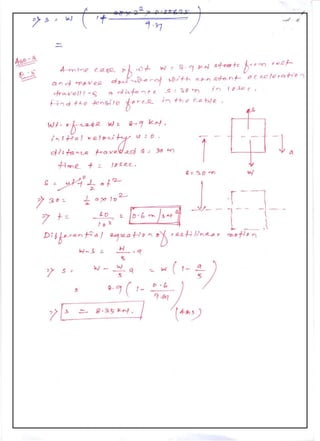 ⇒ S = W ( 1 +
9.81
=
A mine cage of wt W = 8.9 kN starts from rest
and moves downward with constant acceleration
travelling a distance S = 30 m in 10 sec.
find the tensile force in the cable.
Wt. of cage W = 8.9 kN.
initial velocity u = 0.
distance travelled S = 30 m
time t = 10 sec.
S = ut + 1/2 at²
⇒ 30 = 1/2 a × 10²
⇒ = 60 / 10² = 0.6 m/sec²
Differential equation of rectilinear motion
W - S = W/g · a
⇒ S = W - W/g a = W ( 1 - a/g )
= 8.9 ( 1 - 0.6/9.81 )
⇒ S = 8.35 kN. (Ans)
S
W
a
S = 30 m